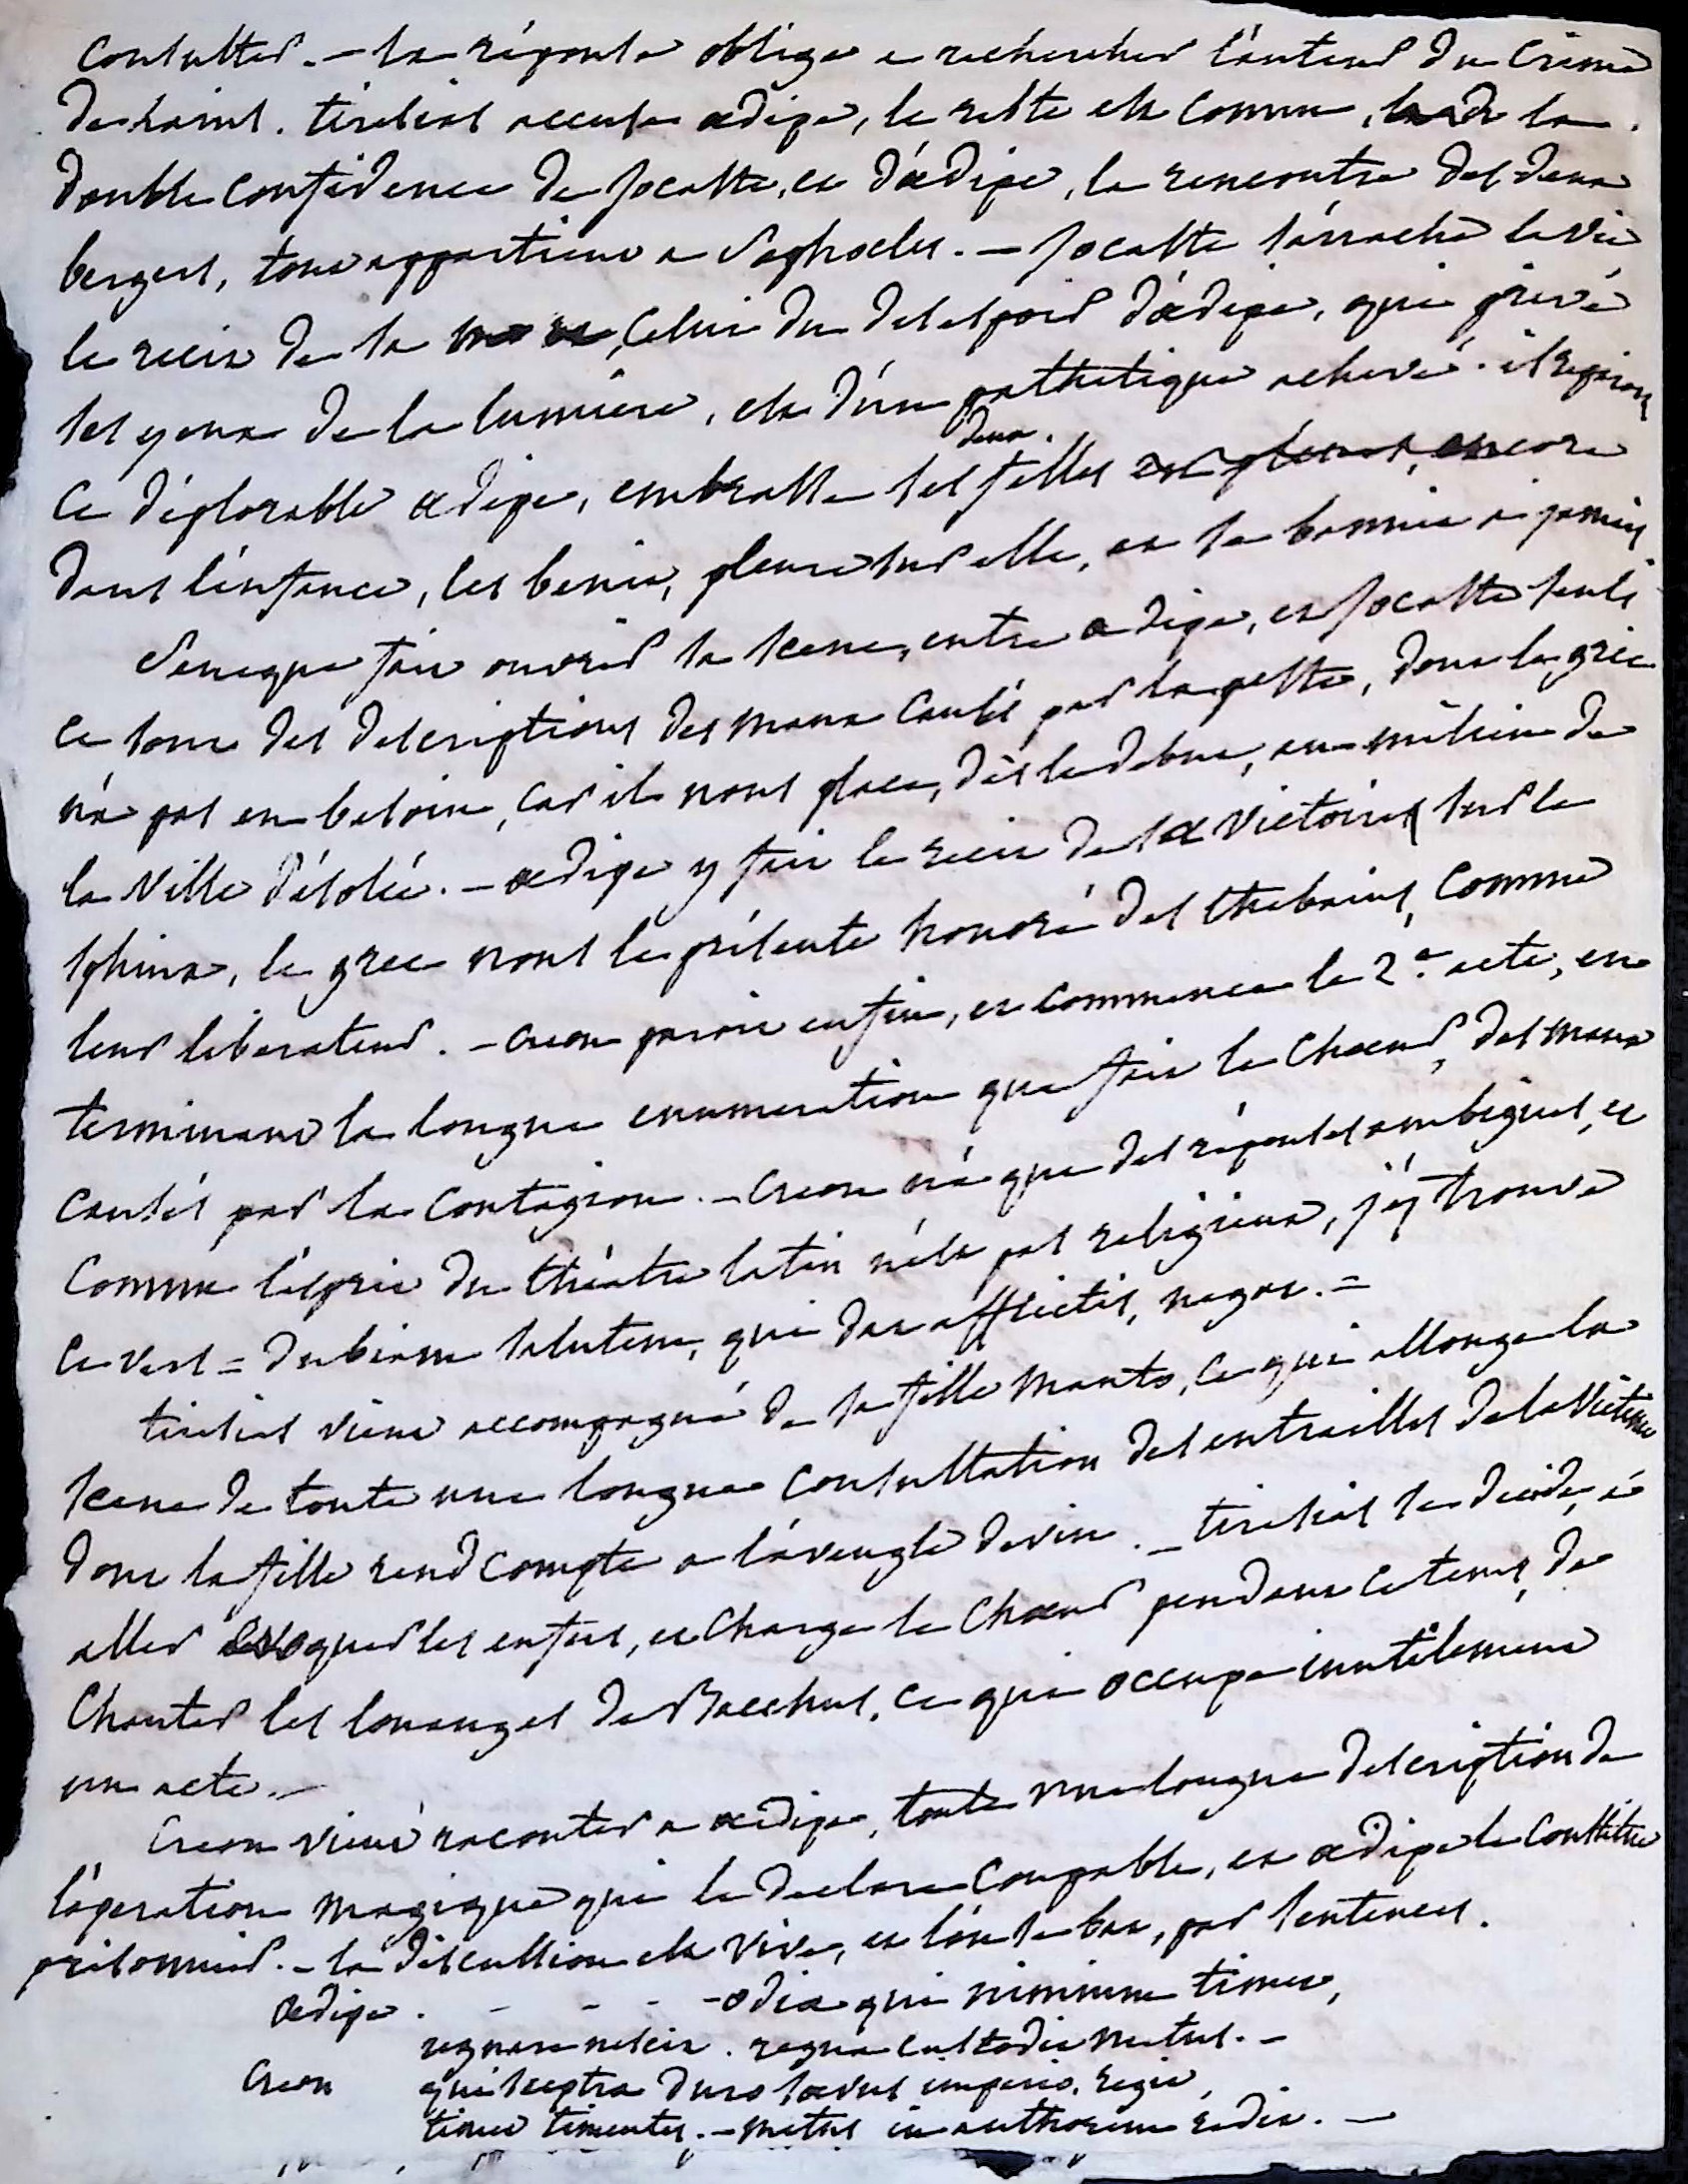 consulter. - la réponse oblige a rechercher l'auteur du crime
de laius. tiresias accuse œdipe, le reste est connu, la
double confidence de jocaste, et d'œdipe, la rencontre des deux
bergers, tout appartient a Sophocles. - jocaste s'arrache la vie,
le recit de sa mort, celui du desespoir d'œdipe, qui privé
ses yeux de la lumiere, est d'un pathetique achevé. il reparoit
ce déplorable œdipe, embrasse ses deux filles encore
dans l'enfance, les benit, pleure sur elle, et se bannit a jamais.
Seneque fait ouvrir la scene, entre œdipe, et jocaste seuls
ce sont des descriptions des maux causés par la peste, dont le grec
n'a pas eu besoin, car il nous place, dès le debut, au milieu de
la ville désolée. - œdipe y fait le recit de sa victoire sur le
sphinx, le grec nous le présente honoré des thebains, comme
leur liberateur. - creon paroit enfin, et commence le 2.e acte, en
terminant la longue enumeration que fait le chœur, des maux
causés par la contagion. - creon n'a que des réponses ambigues, et
comme l'esprit du théatre latin n'est pas religieux, j'y trouve
ce vers = dubiam salutem, qui dat afflictis, negat. =
tiresias vient accompagné de sa fille manto, ce qui allonge la
scene de toute une longue consultation des entrailles de la victime
dont la fille rend compte a l'aveugle devin. - tiresias se decide, a
aller evoquer les enfers, et charge le chœur pendant ce tems, de
chanter les louanges de Bacchus, ce qui occupe inutilement
un acte. -
creon vient raconter a œdipe, toute une longue description de
l'operation magique qui le declare coupable, et œdipe le constitue
prisonnier. - la discussion est vive, et l'on se bat, par sentences.
Œdipe. - - - - odia qui nimium timet,
regnare nescit. regna custodit metus. -
Creon qui sceptra duro sævus imperio regit,
timet timentes. - metus in authorem redit. -